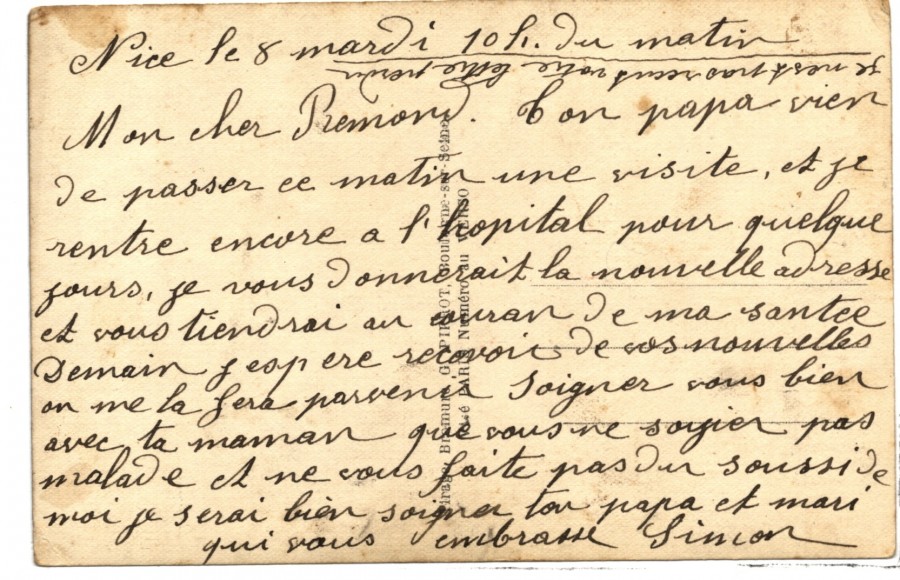 Nice le 8 mardi 10 h. du matin
je n'est pas reçus votre lettre
Mon cher Remond. Ton papa vien
de passer ce matin une visite, et je
rentre encore a l'hopital pour quelque
jours, je vous donnerait la nouvelle adresse
et vous tiendrai au couran de ma santée
Demain j'espere recevoir de vos nouvelles
on me la fera parvenir Soigner vous bien
avec ta maman que vous ne soyier pas
malade et ne vous faite pas du soussi de
moi je serai bien soigner ton papa et mari
qui vous embrasse Simon
PARIS Numéro au VERSO